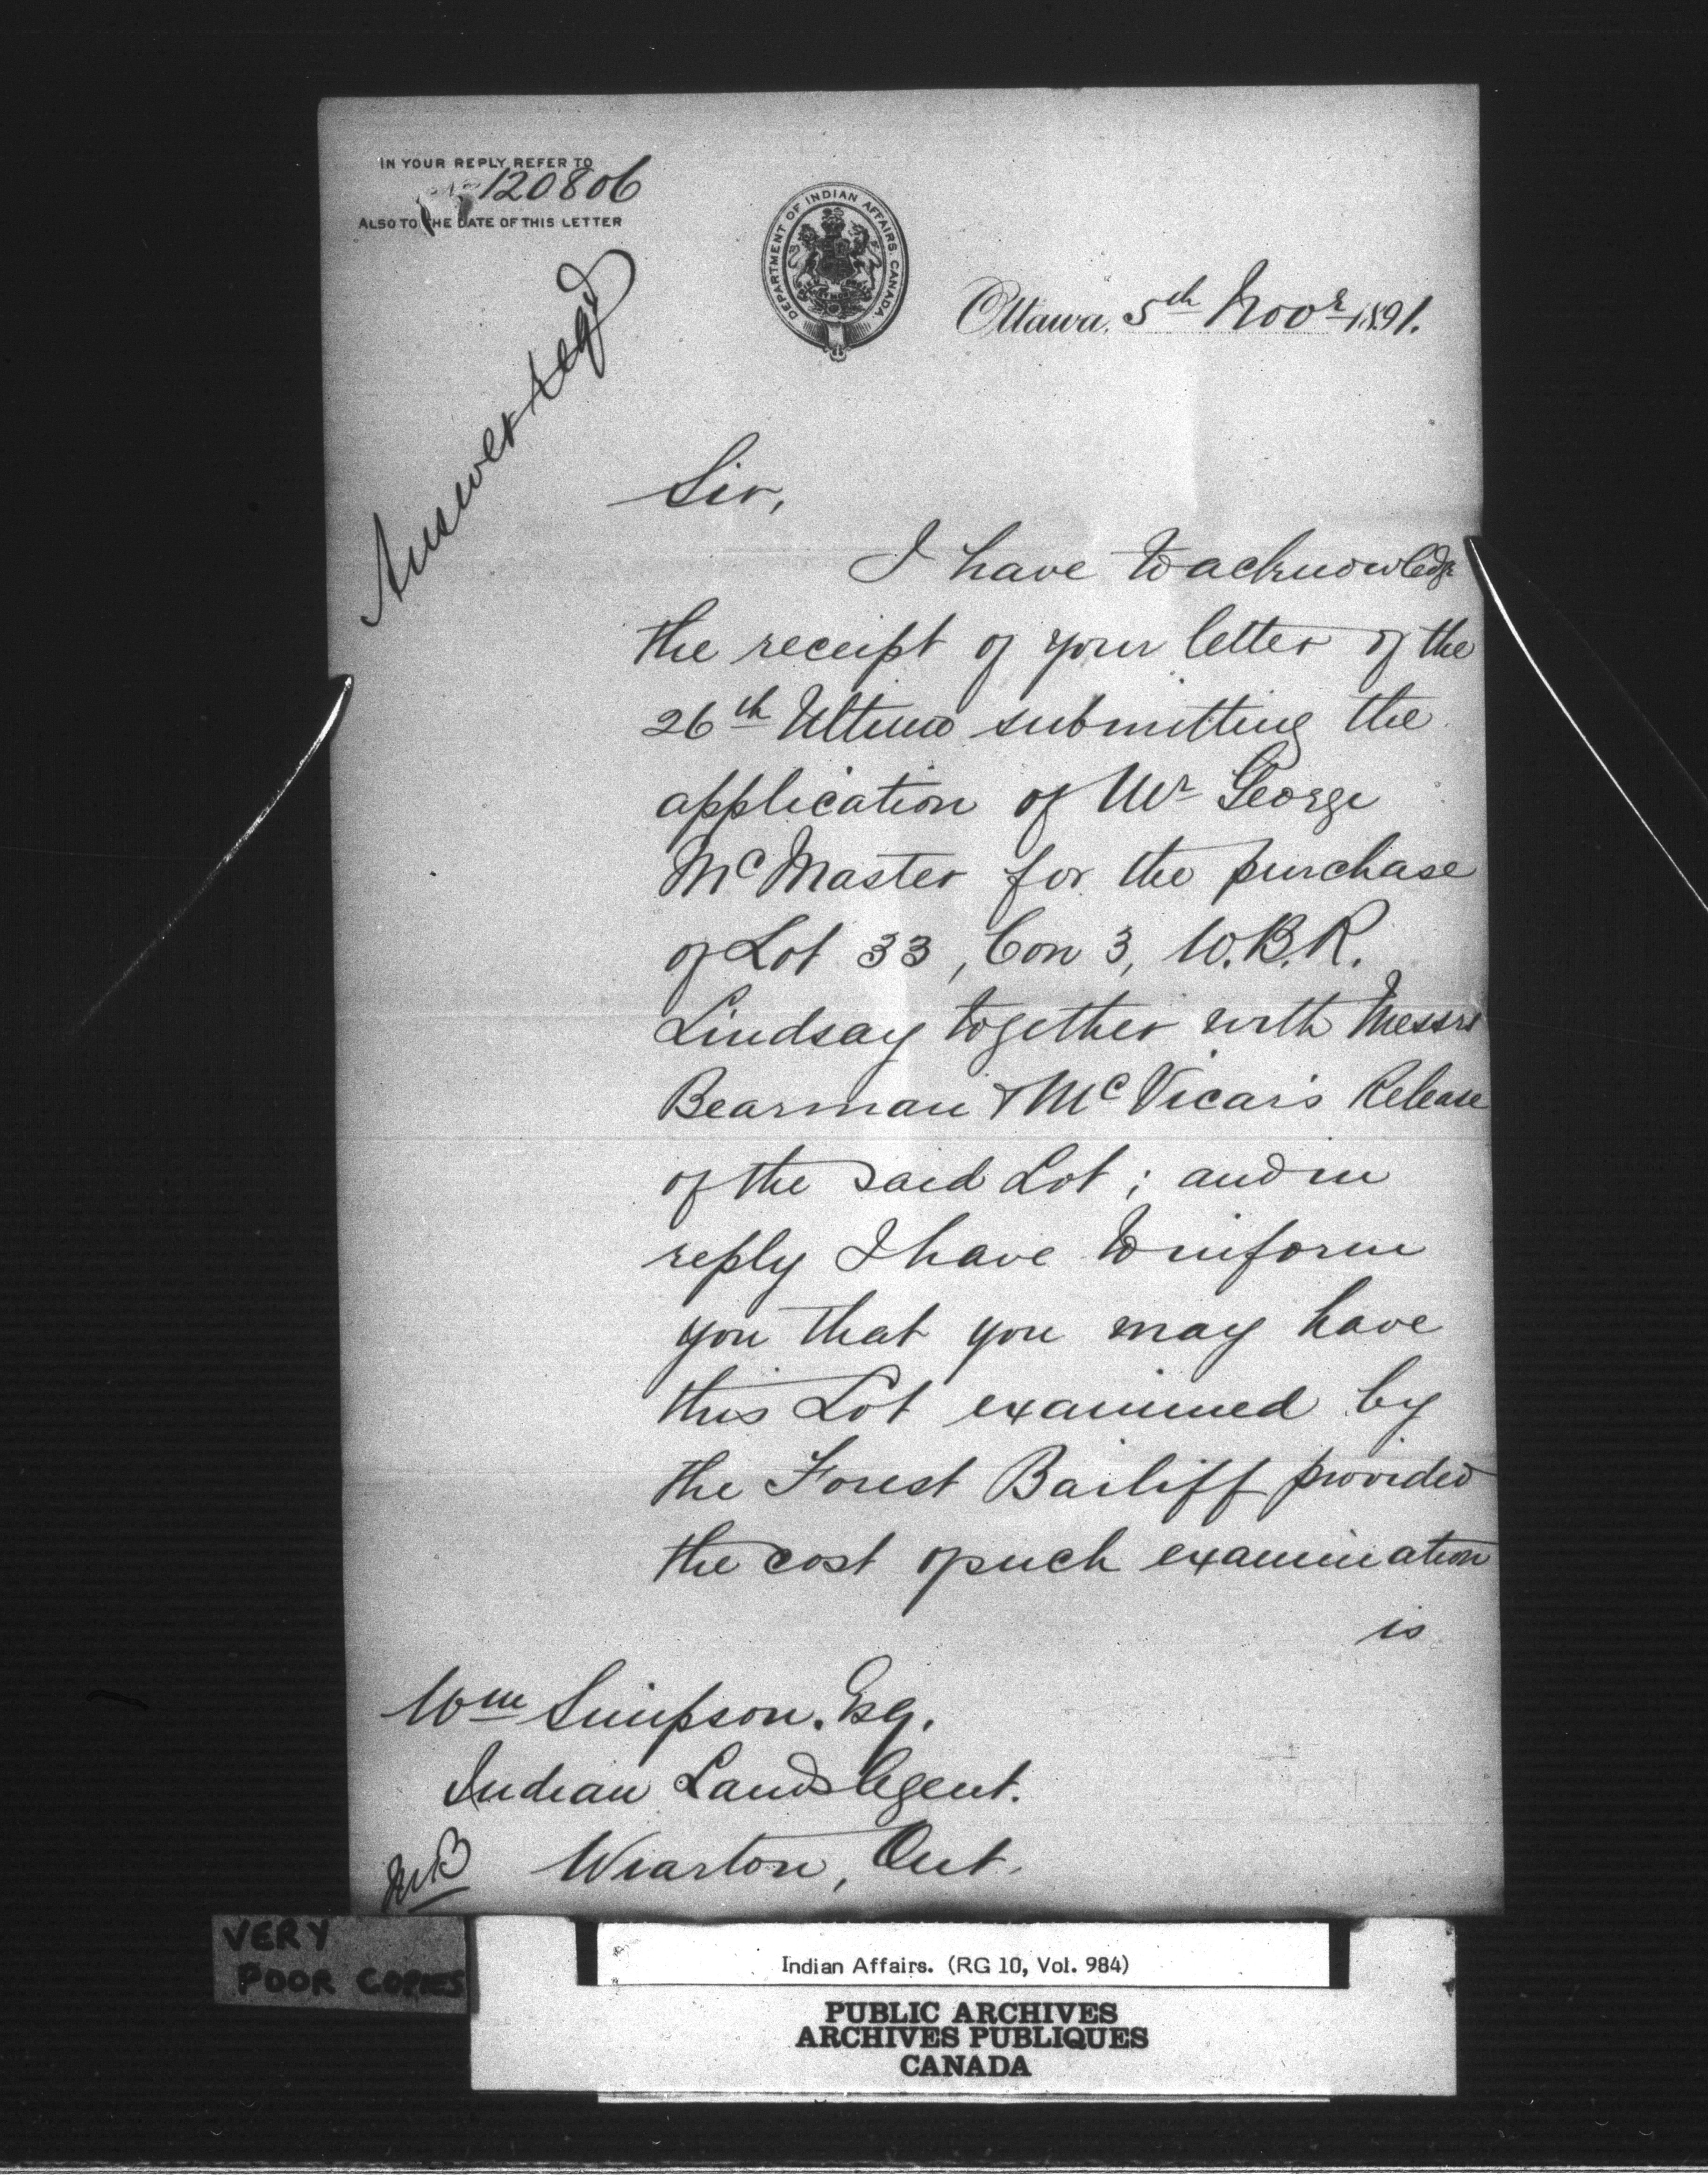 IN YOUR REPLY REFER TO
No 120806
ALSO TO THE DATE OF THIS LETTER
DEPARTMENT OF INDIAN AFFAIRS. CANADA.
Ottawa, 5th Novr 1891.
Answer reqd
Sir,
I have to acknowledge
the receipt of your letter of the
26th Ultimo submitting the
application of Mr George
McMaster for the purchase
of Lot 33, Con 3, W.B.R.
Lindsay together with Messrs
Bearman & McVicar's Release
of the said Lot; and in
reply I have to inform
you that you may have
this Lot examined by
the Forest Bailiff provided
the cost of such examination
is
Wm Simpson. Esq.
Indian Lands Agent.
Wiarton, Ont.
VERY
POOR COPIES
Indian Affairs. (RG 10, Vol. 984)
PUBLIC ARCHIVES
ARCHIVES PUBLIQUES
CANADA